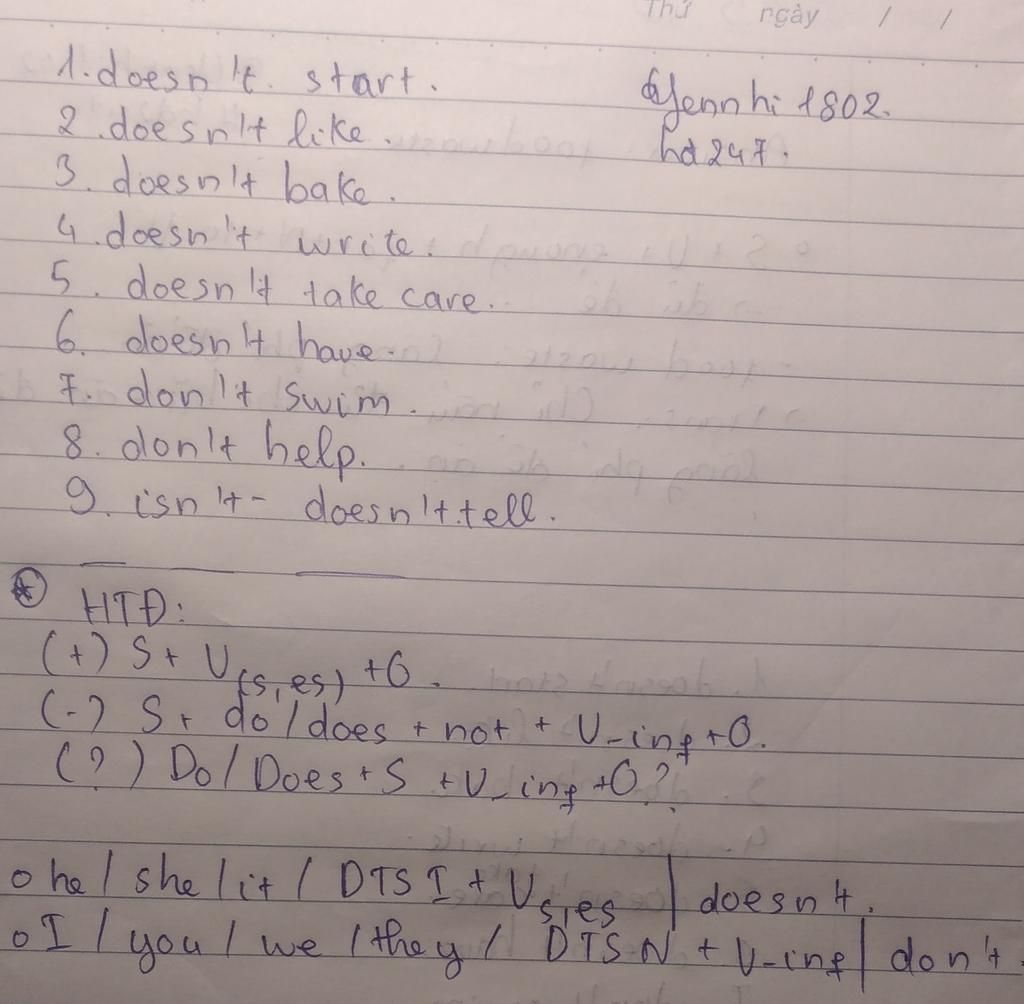 Thứ ngày / /
1. doesn't start.
2. doesn't like.
3. doesn't bake.
4. doesn't write.
5. doesn't take care.
6. doesn't have.
7. don't swim.
8. don't help.
9. isn't - doesn't tell.
Yennhi 1802.
hd247.
HTĐ:
(+) S + V(s,es) + O.
(-) S + do/does + not + V_inf + O.
(?) Do/Does + S + V_inf + O?
o he / she / it / DTS I + Vs,es | doesn't.
o I / you / we / they / DTS N + V-inf | don't.